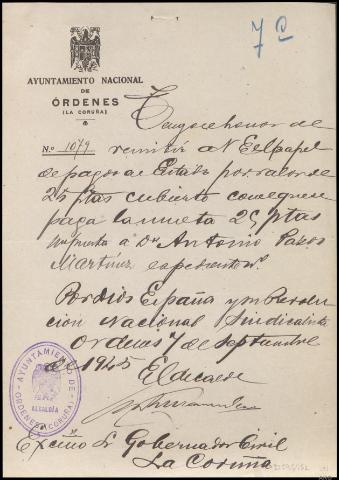 7ª
AYUNTAMIENTO NACIONAL
DE
ÓRDENES
(LA CORUÑA)
Tengo el honor de
N.º 1079 remitir a V E el papel
de pagos al Estado por valor de
25 ptas cubierto con el que se
paga la multa 25 ptas
impuesta a Dn Antonio Pazos
Martínez expediente nº.
Por Dios España y su Revolu
cion Nacional Sindicalista
Ordenes 7 de Septiembre
de 1945
El Alcalde
AYUNTAMIENTO DE ORDENES (CORUÑA)
ALCALDIA
Excmo Sr Gobernador Civil
La Coruña